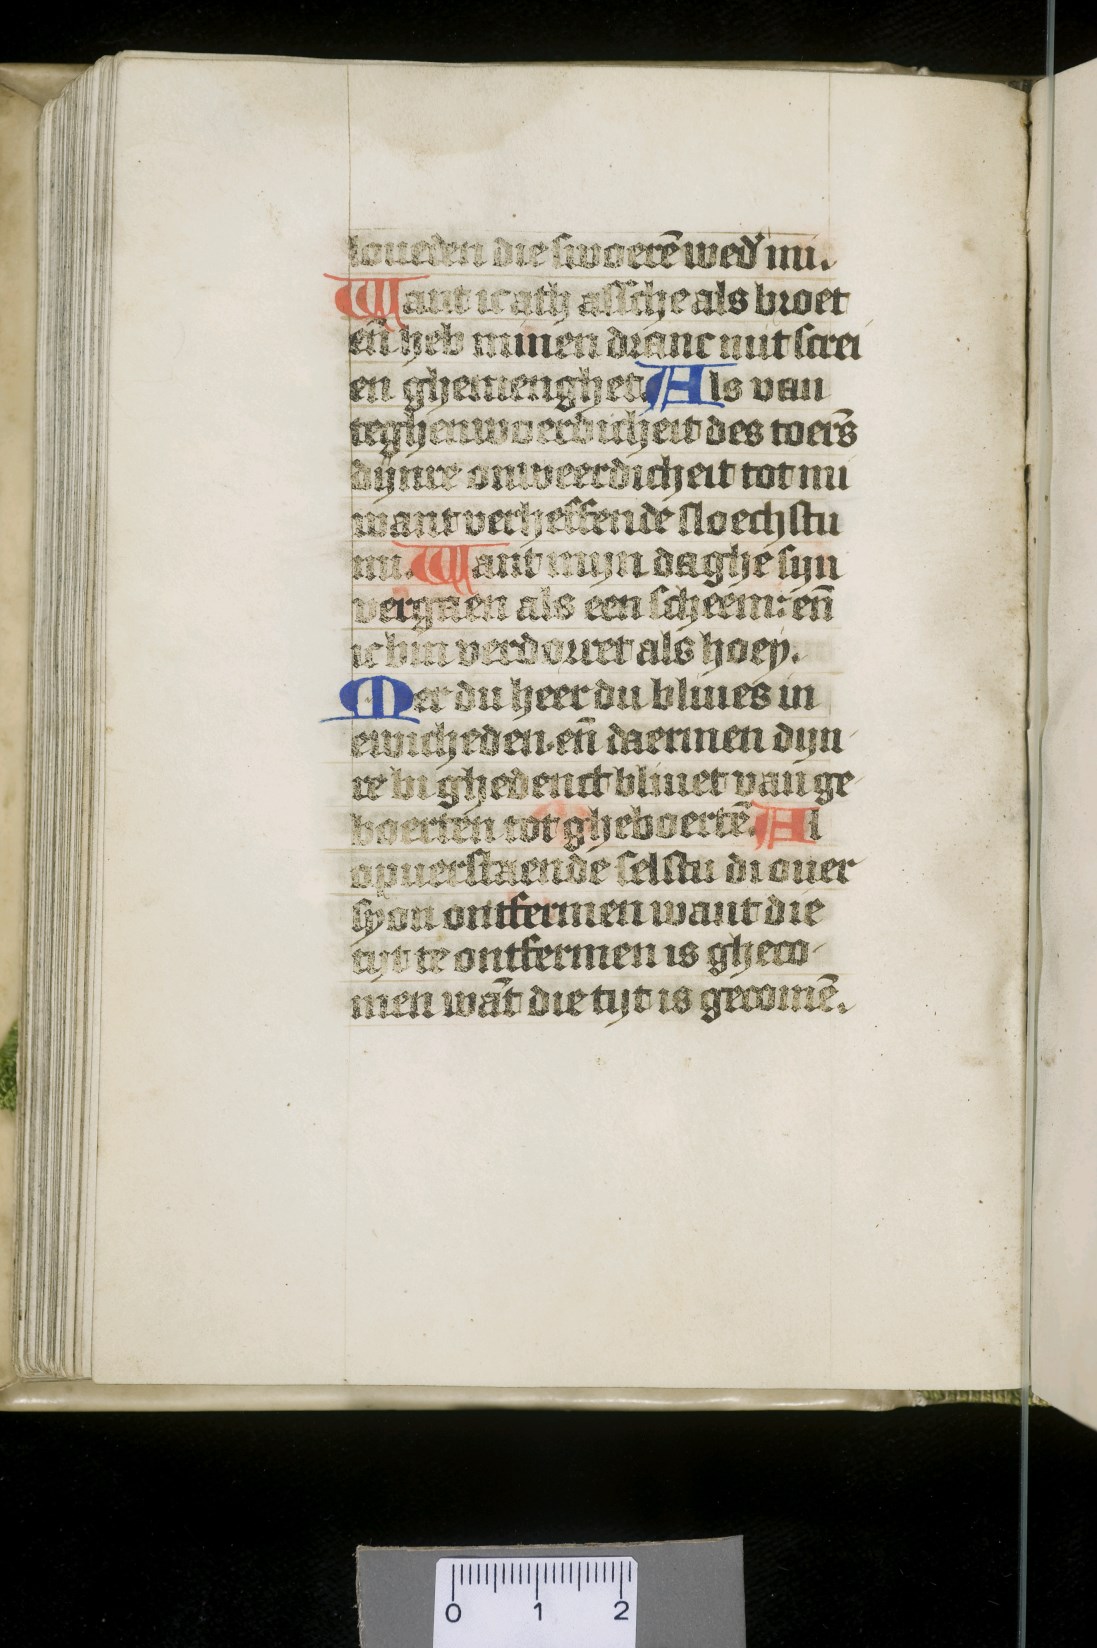 loueden die swoerē wed' mi.
Want ic ath assche als broet
en̄ heb minen dranc mit screi
en ghemenghet. Als van
teghenwoerdicheit des toerṡ
dijnre onweerdicheit tot mi
want verheffende sloechstu
mi. Want mijn daghē sijn
vergaen als een scheem: en̄
ic bin verdorret als hoey.
Mer du heer du bliues in
ewicheden. en̄ daermen dijn
re bi ghedenct bliuet van ge
boerten tot gheboertē. Al
opuerstaende selstu di ouer
syon ontfermen want die
tijt te ontfermen is gheco
men wāt die tijt is gecomē.
0 1 2